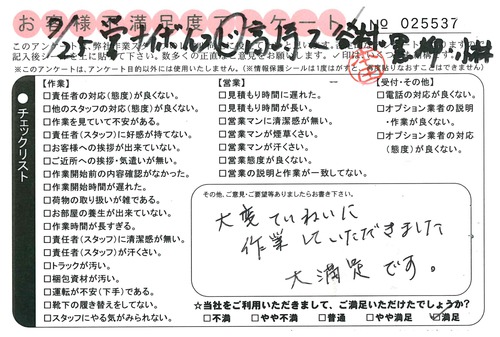 お客様満足度アンケート No 025537
このアンケートは、弊社作業スタッフの
記入後シールを上に貼って下さい。数多くの正直なご意見をお願いします。
(※このアンケートは、アンケート目的以外には使用いたしません。)(※情報保護シールは1度はがすと、再度貼りなおすことはできません)
チェックリスト
【作業】
□責任者の対応(態度)が良くない。
□他のスタッフの対応(態度)が良くない。
□作業を見ていて不安がある。
□責任者(スタッフ)に好感が持てない。
□お客様への挨拶が出来ていない。
□ご近所への挨拶・気遣いが無い。
□作業開始前の内容確認がなかった。
□作業開始時間が遅れた。
□荷物の取り扱いが雑である。
□お部屋の養生が出来ていない。
□作業時間が長すぎる。
□責任者(スタッフ)に清潔感が無い。
□責任者(スタッフ)が汗くさい。
□トラックが汚い。
□梱包資材が汚い。
□運転が不安(下手)である。
□靴下の履き替えをしてない。
□スタッフにやる気がみられない。
【営業】
□見積もり時間に遅れた。
□見積もり時間が長い。
□営業マンに清潔感が無い。
□営業マンが煙草くさい。
□営業マンが汗くさい。
□営業態度が良くない。
□営業の説明と作業が一致してない。
【受付・その他】
□電話の対応が良くない。
□オプション業者の説明
・作業が良くない。
□オプション業者の対応
(態度)が良くない。
その他、ご意見・ご要望等ありましたらお書き下さい。
大変ていねいに
作業していただきました
大満足です。
☆当社をご利用いただきまして、ご満足いただけたでしょうか?
□不満 □やや不満 □普通 □やや満足 ☑満足